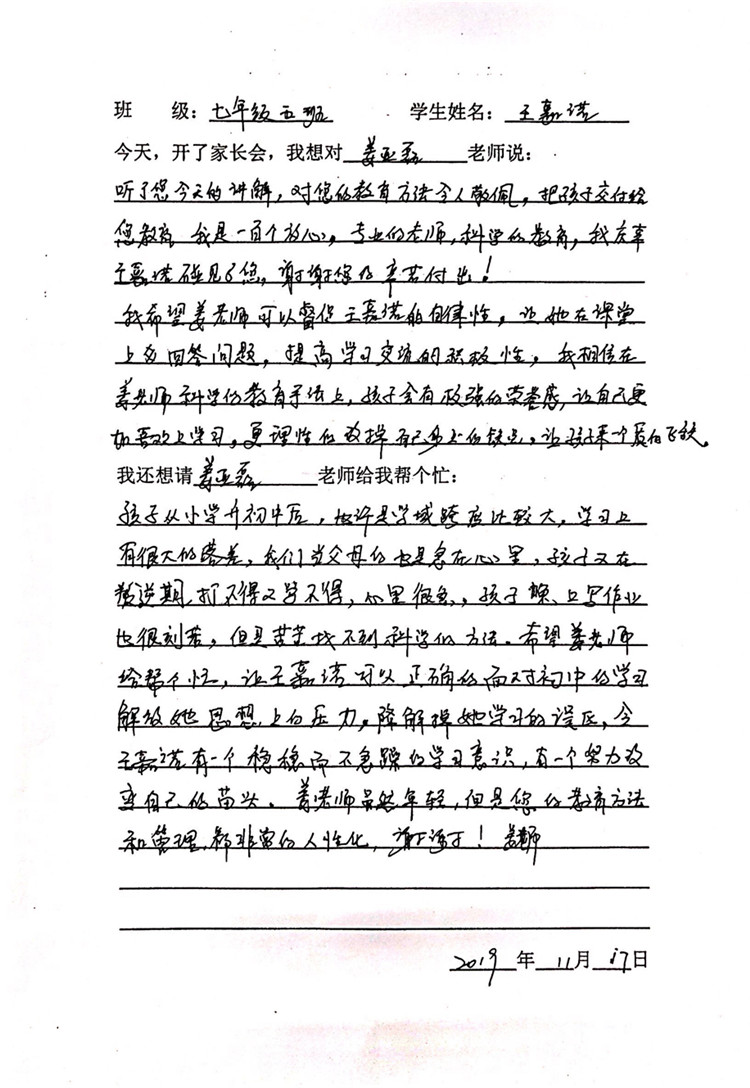 班 级：七年级五班 学生姓名：王嘉诺
今天，开了家长会，我想对 姜亚磊 老师说：
听了您今天的讲解，对您的教育方法令人敬佩，把孩子交付给
您教育 我是一百个放心，专业的老师，科学的教育，我庆幸
王嘉诺碰见了您，谢谢您的辛苦付出！
我希望姜老师可以督促王嘉诺的自律性，让她在课堂
上多回答问题，提高学习交流的积极性，我相信在
姜老师科学的教育手法上，孩子会有极强的荣誉感，让自己更
加喜欢上学习，更理性的改掉自己身上的缺点，让孩子来一个质的飞跃。
我还想请 姜亚磊 老师给我帮个忙：
孩子从小学升初中后，也许是学域跨度比较大，学习上
有很大的落差，我们当父母的也是急在心里，孩子又在
叛逆期，打不得又骂不得，心里很急，孩子晚上写作业
也很刻苦，但是苦苦找不到科学的方法。希望姜老师
给帮个忙，让王嘉诺可以正确的面对初中的学习
解放她思想上的压力，降解掉她学习的误区，令
王嘉诺有一个稳稳而不急躁的学习意识，有一个努力改
变自己的苗头。姜老师虽然年轻，但是您的教育方法
和管理，都非常的人性化，谢谢！姜老师
2019 年 11 月 17 日